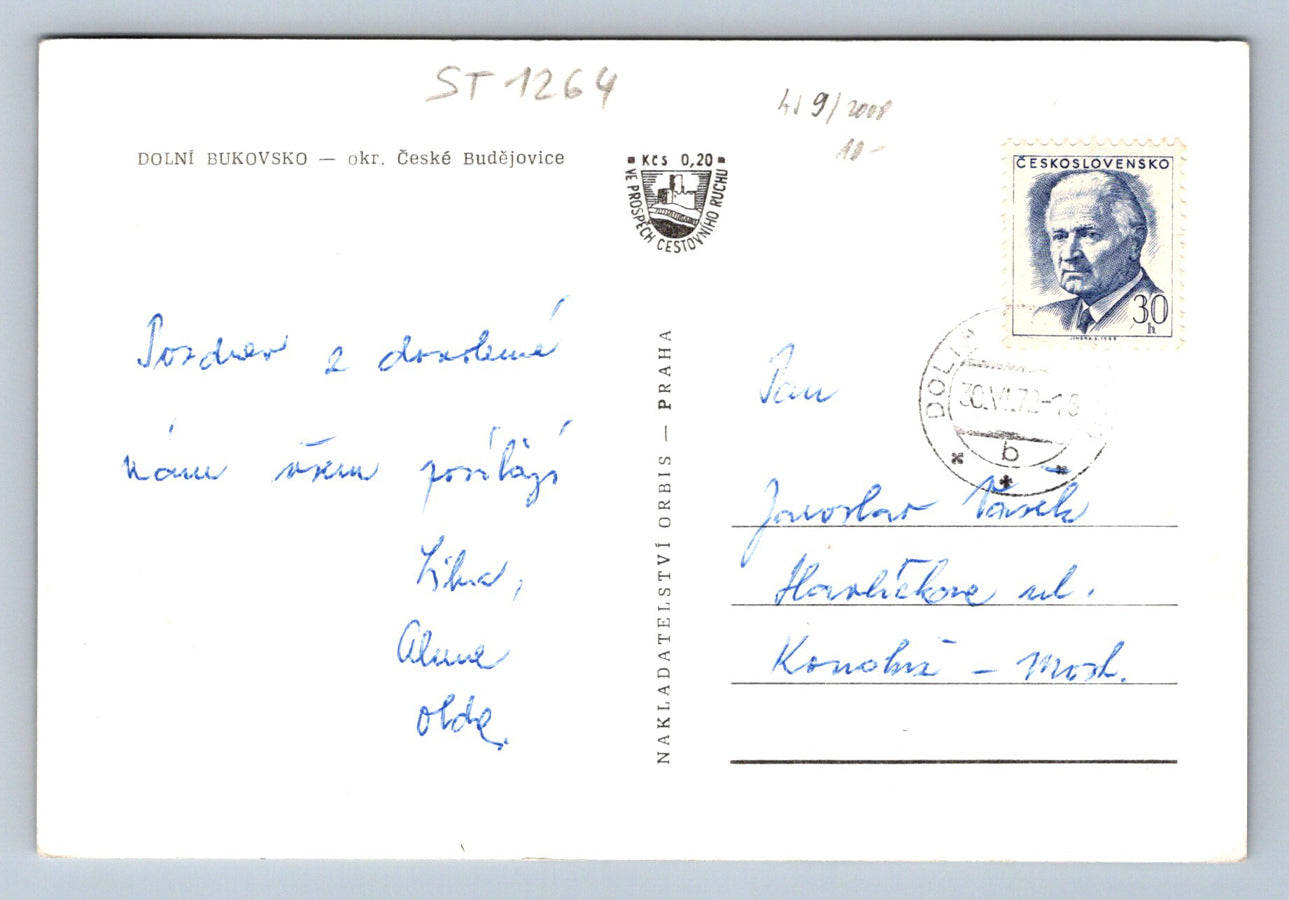 ST 1264
9/2008
10-
DOLNÍ BUKOVSKO — okr. České Budějovice
Kčs 0,20
VE PROSPĚCH CESTOVNÍHO RUCHU
ČESKOSLOVENSKO
30
h
DOLN
30.VI.72-18
b
Pozdrav z dovolené
Vám všem posílají
Liba,
Alena
Olda.
NAKLADATELSTVÍ ORBIS — PRAHA
Pan
Jaroslav Vašek
Havlíčkova ul.
Konobrž – Most.